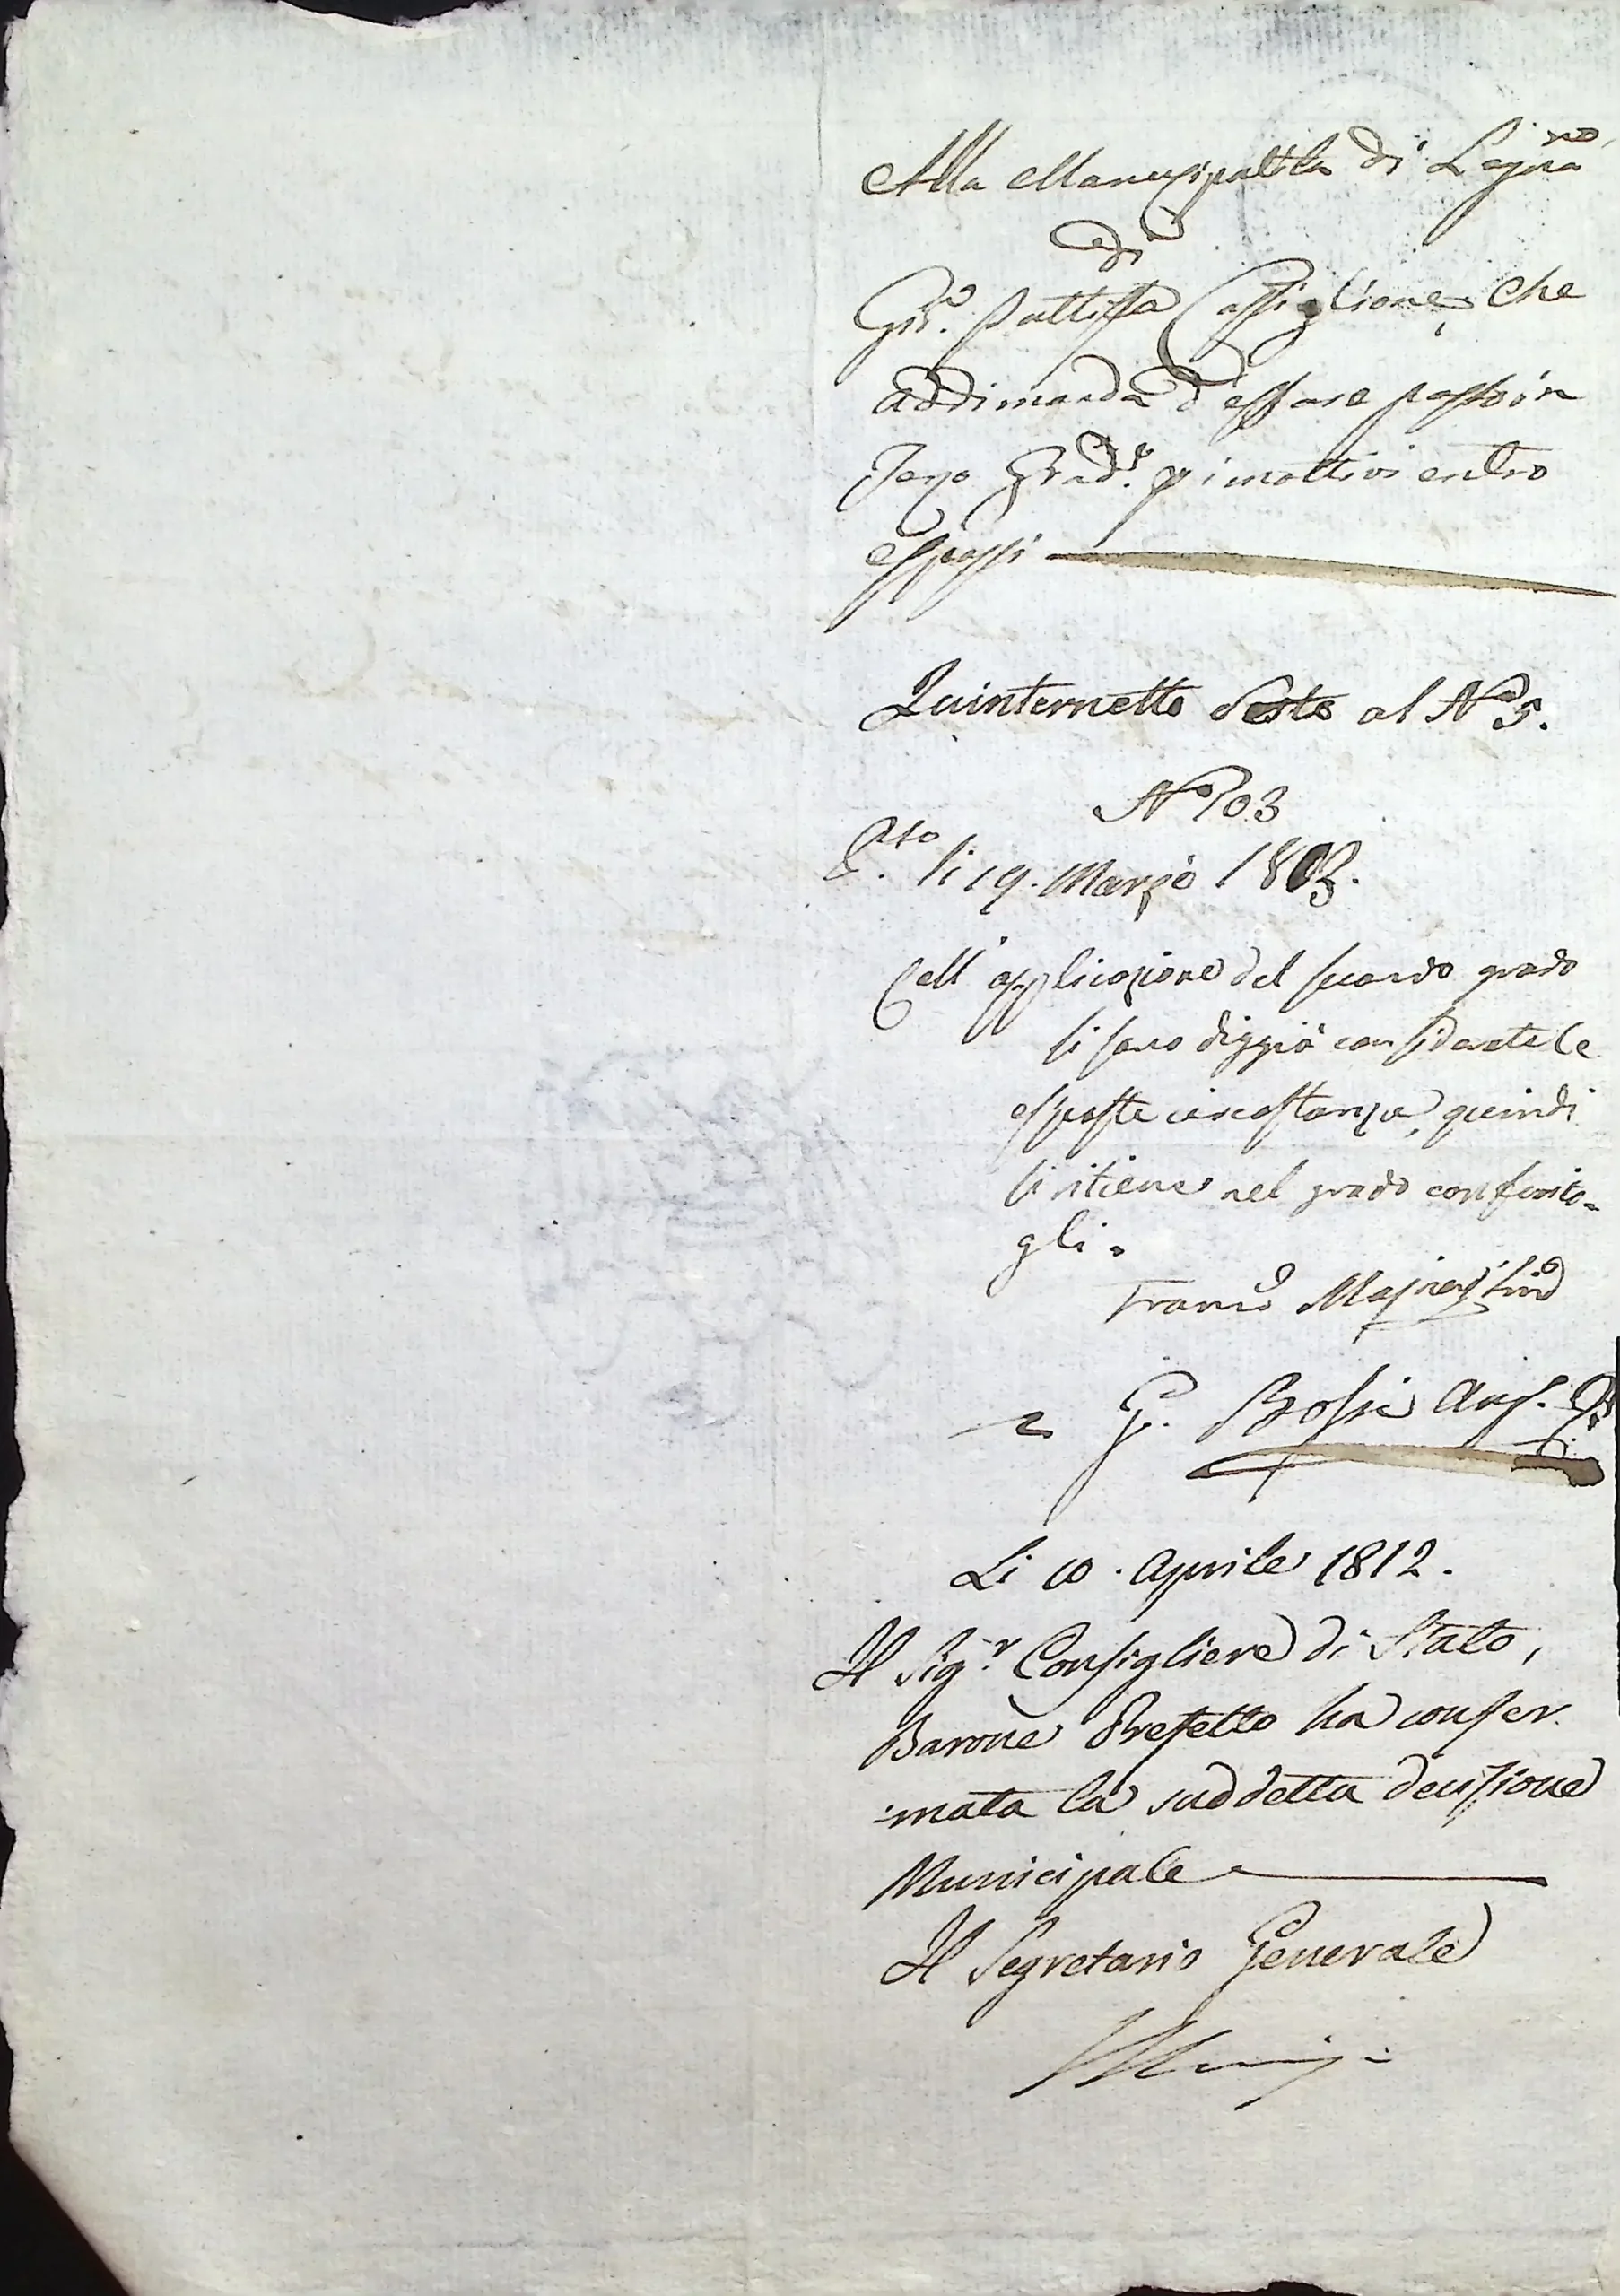 Alla Municipalità di Legna.no
di
Gio. Battista Castiglione, Che
addimanda d'essere posto in
Terzo Grad.o p i mottivi entro
esposti
Quinternetto Sesto al N.o 5.
N.o 103
E.to li 19. Marzo 1812.
Nell'applicazione del secondo grado
si sono diggià considerate le
esposte circostanze, quindi
si ritiene nel grado conferito-
gli.
Franco
G. Bossi
Li 10. Aprile 1812.
Il Sig.r Consigliere di Stato,
Barone Prefetto ha confer.
mata la suddetta decisione
Municipale
Il Segretario Generale